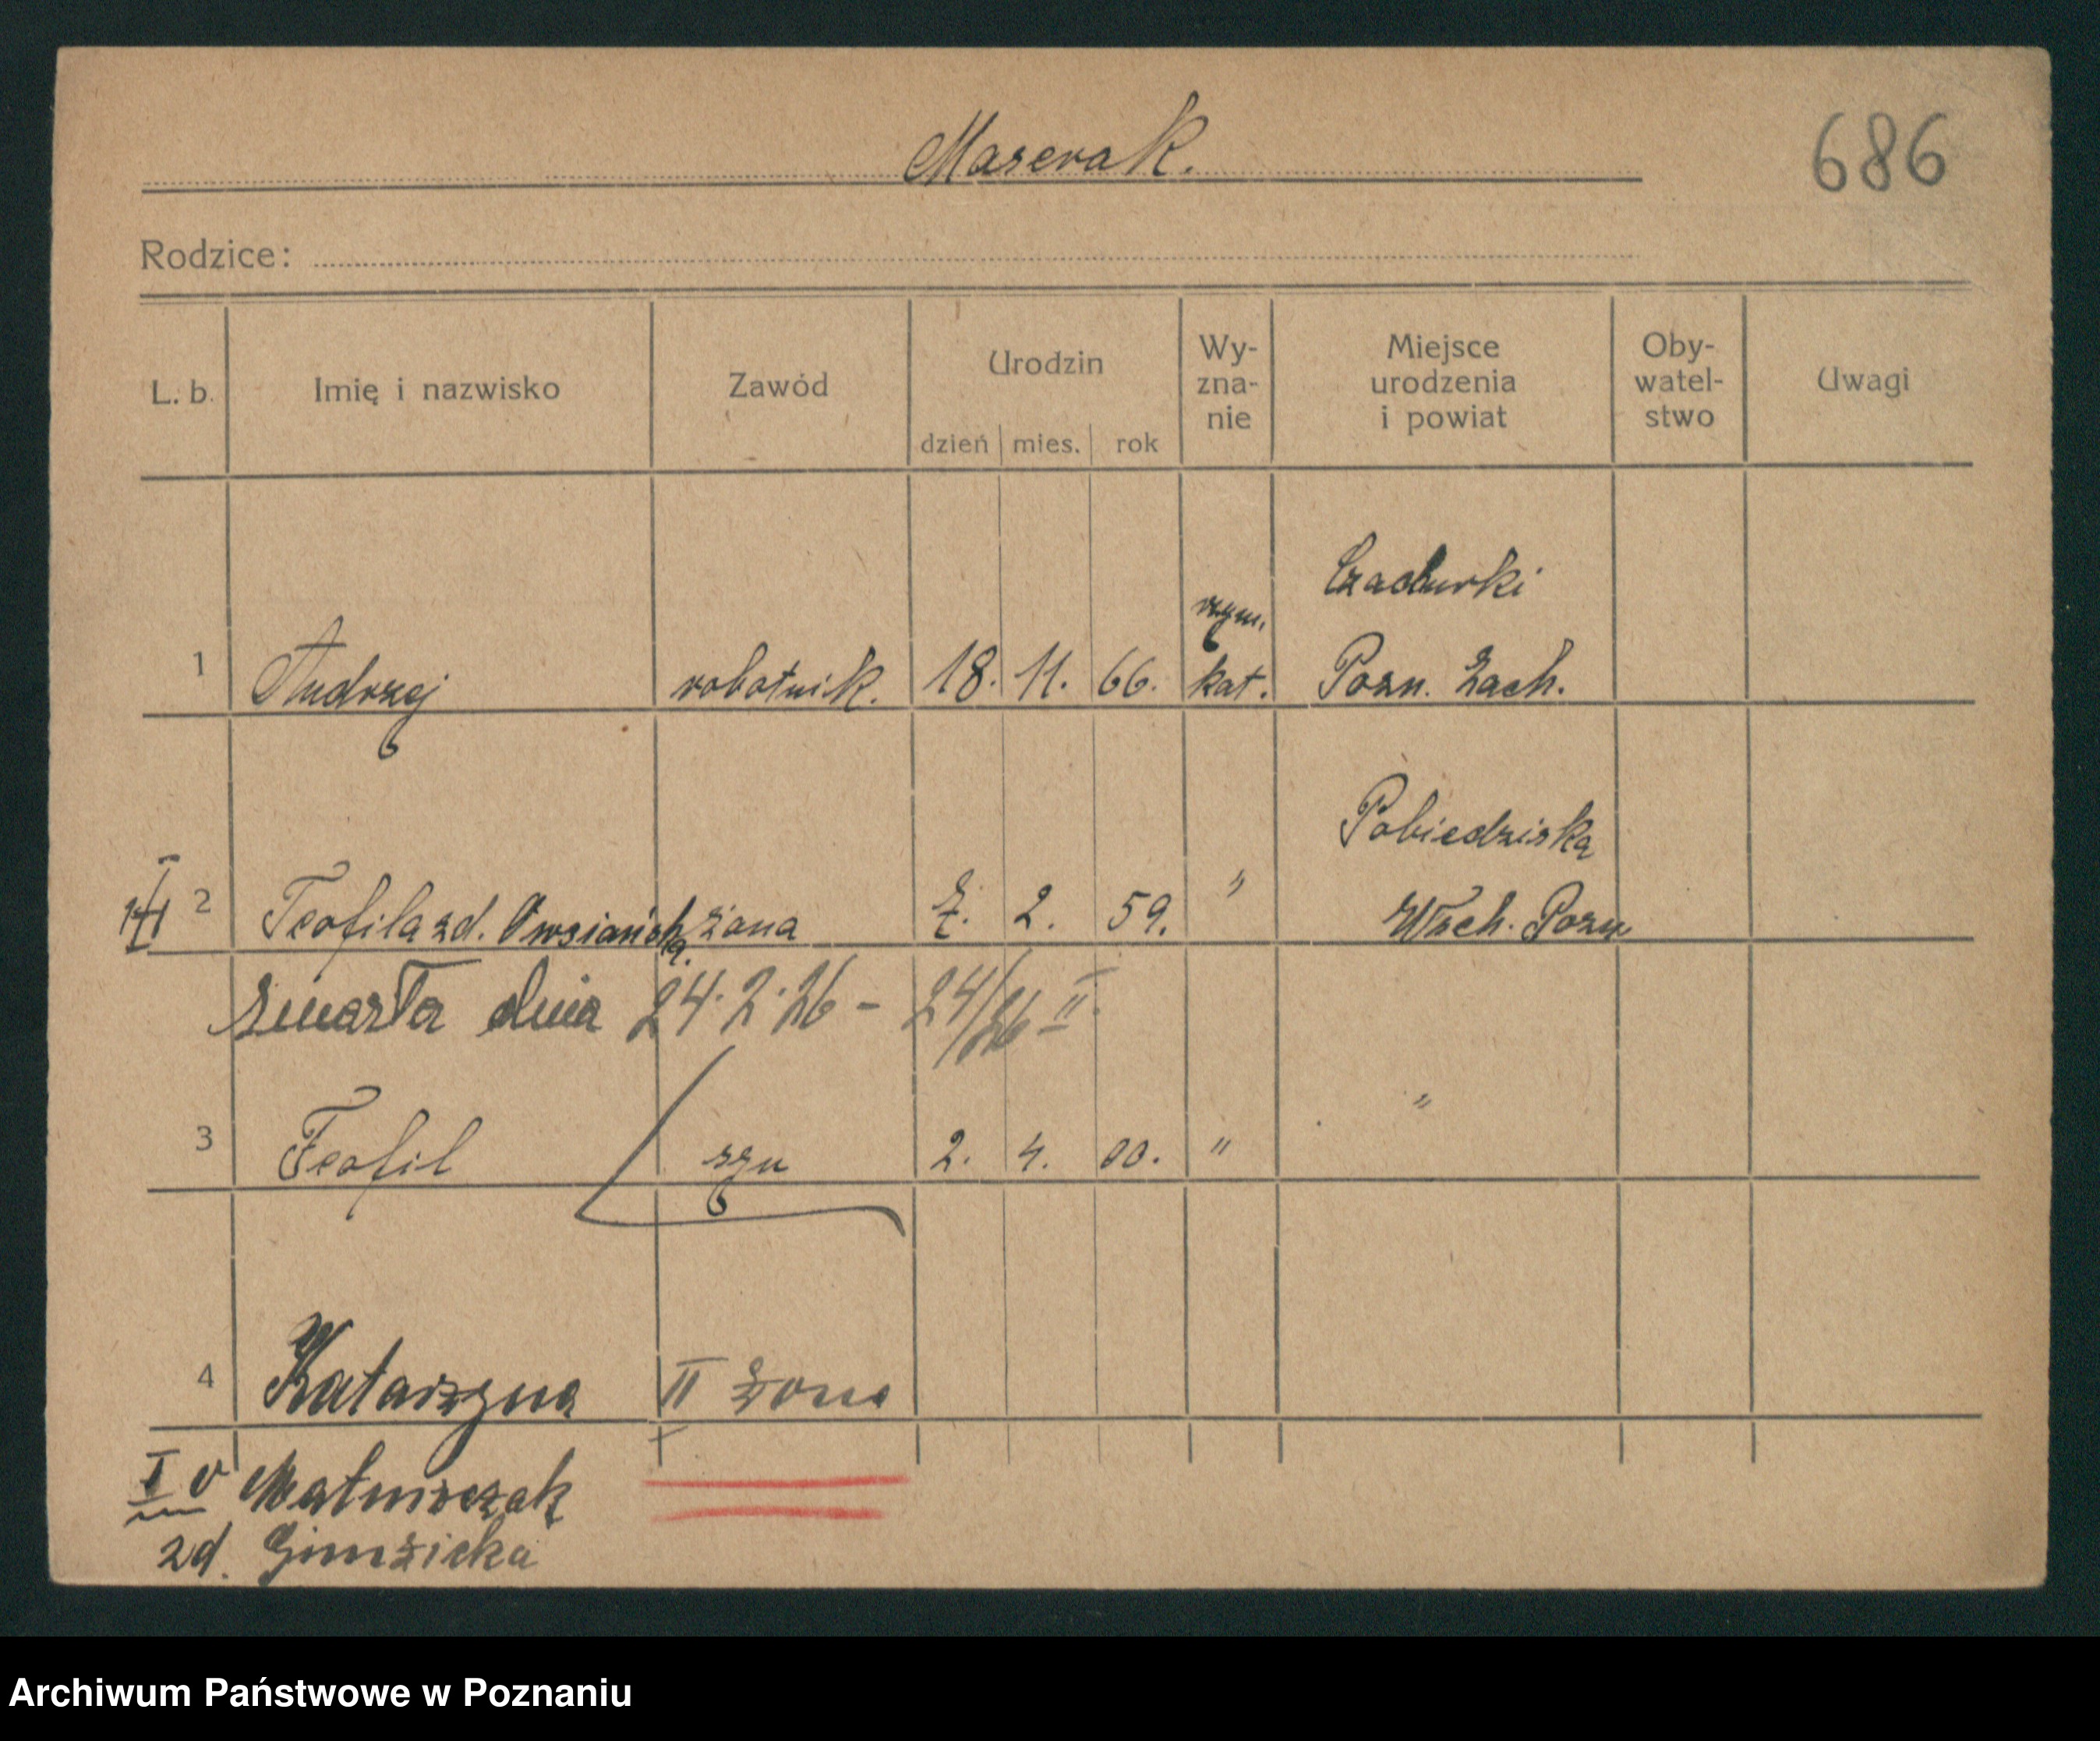 Maserak.
686
Rodzice:
L. b. Imię i nazwisko Zawód Urodzin dzień mies. rok Wy-zna-nie Miejsce urodzenia i powiat Oby-watel-stwo Uwagi
1 Andrzej robotnik. 18. 11. 66. rzym. kat. Pozn. Zach.
2 Teofila zd. żona 2. 59. " Pobiedziska Wsch. Pozn
zmarła dnia 24.2.26 - 24/26 II
3 Teofil syn 2. 4. 00. " "
4 Katarzyna II żona
I v
zd.
Archiwum Państwowe w Poznaniu